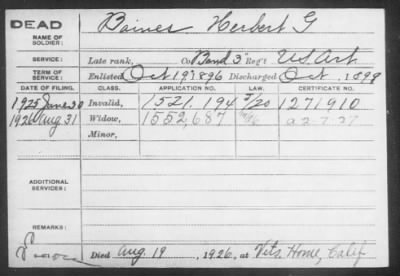 DEAD
NAME OF SOLDIER: Baines Herbert G
SERVICE: Late rank, Co Band 3" Reg't U.S. Art
TERM OF SERVICE: Enlisted Oct 19, 1896 Discharged Oct, 1899
DATE OF FILING. CLASS. APPLICATION NO. LAW. CERTIFICATE NO.
1925 June 30 Invalid, 1521.194 5/20 1271910
1926 Aug 31 Widow, 1552,687 A 2-7-27
Minor,
ADDITIONAL SERVICES:
REMARKS:
Died Aug. 19, 1926, at Vets. Home, Calif